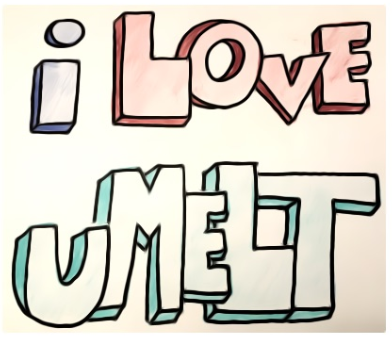 i LOVE
UMELT